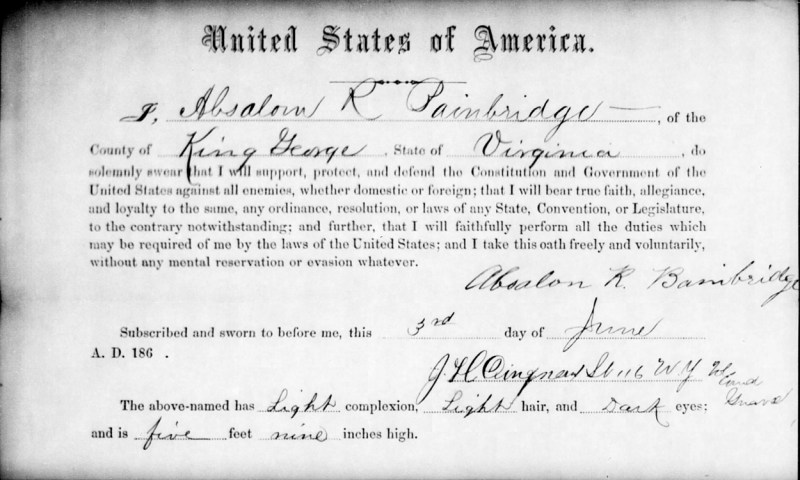 United States of America.
I, Absalom R Bainbridge, of the
County of King George, State of Virginia, do
solemnly swear that I will support, protect, and defend the Constitution and Government of the
United States against all enemies, whether domestic or foreign; that I will bear true faith, allegiance,
and loyalty to the same, any ordinance, resolution, or laws of any State, Convention, or Legislature,
to the contrary notwithstanding; and further, that I will faithfully perform all the duties which
may be required of me by the laws of the United States; and I take this oath freely and voluntarily,
without any mental reservation or evasion whatever.
Absalon R. Bainbridge
Subscribed and sworn to before me, this 3rd day of June
A. D. 186 .
J. H. 16 N Y
The above-named has Light complexion, Light hair, and Dark eyes;
and is five feet nine inches high.